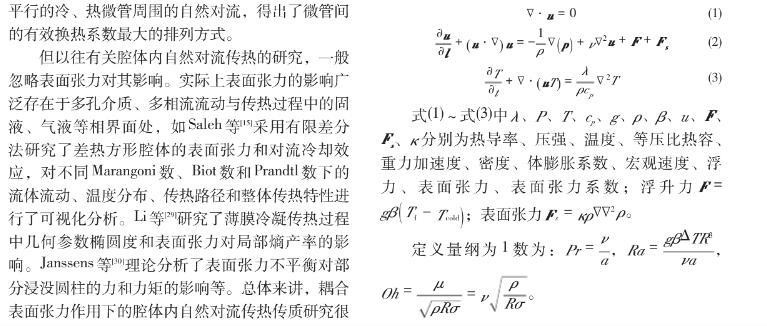 平行的冷、热微管周围的自然对流，得出了微管间
的有效换热系数最大的排列方式。
但以往有关腔体内自然对流传热的研究，一般
忽略表面张力对其影响。实际上表面张力的影响广
泛存在于多孔介质、多相流流动与传热过程中的固
液、气液等相界面处，如Saleh等[15]采用有限差分
法研究了差热方形腔体的表面张力和对流冷却效
应，对不同Marangoni数、Biot数和Prandtl数下的
流体流动、温度分布、传热路径和整体传热特性进
行了可视化分析。Li等[29]研究了薄膜冷凝传热过程
中几何参数椭圆度和表面张力对局部熵产率的影
响。Janssens等[30]理论分析了表面张力不平衡对部
分浸没圆柱的力和力矩的影响等。总体来讲，耦合
表面张力作用下的腔体内自然对流传热传质研究很
∇·u = 0 (1)
∂u/∂t + (u·∇)u = -1/ρ ∇(p) + ν∇²u + F + Fs (2)
∂T/∂t + ∇·(uT) = λ/ρcp ∇²T (3)
式(1)~式(3)中λ、P、T、cp、g、ρ、β、u、F、
Fs、κ分别为热导率、压强、温度、等压比热容、
重力加速度、密度、体膨胀系数、宏观速度、浮
力、表面张力、表面张力系数；浮升力F =
gβ(Tf - Tcold)；表面张力Fs = κρ∇∇²ρ。
定义量纲为1数为：Pr = ν/a，Ra = gβΔTR³/νa，
Oh = μ/√ρRσ = ν√ρ/Rσ。